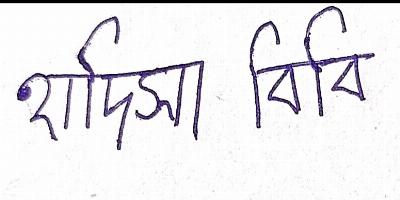 হাদিসা বিবি